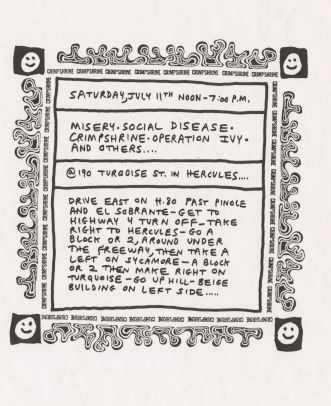 CRIMPSHRINE CRIMPSHRINE CRIMPSHRINE CRIMPSHRINE CRIMPSHRINE CRIMPSHRINE CRIMPSHRINE CRIMPSHRINE
SATURDAY, JULY 11TH NOON-7:00 P.M.
MISERY·SOCIAL DISEASE·
CRIMPSHRINE·OPERATION IVY·
AND OTHERS....
@ 190 TURQOISE ST. IN HERCULES....
DRIVE EAST ON H.80 PAST PINOLE
AND EL SOBRANTE-GET TO
HIGHWAY 4 TURN OFF-TAKE
RIGHT TO HERCULES-GO A
BLOCK OR 2, AROUND UNDER
THE FREEWAY, THEN TAKE A
LEFT ON SYCAMORE-A BLOCK
OR 2 THEN MAKE RIGHT ON
TURQUOISE-GO UP HILL-BEIGE
BUILDING ON LEFT SIDE.....